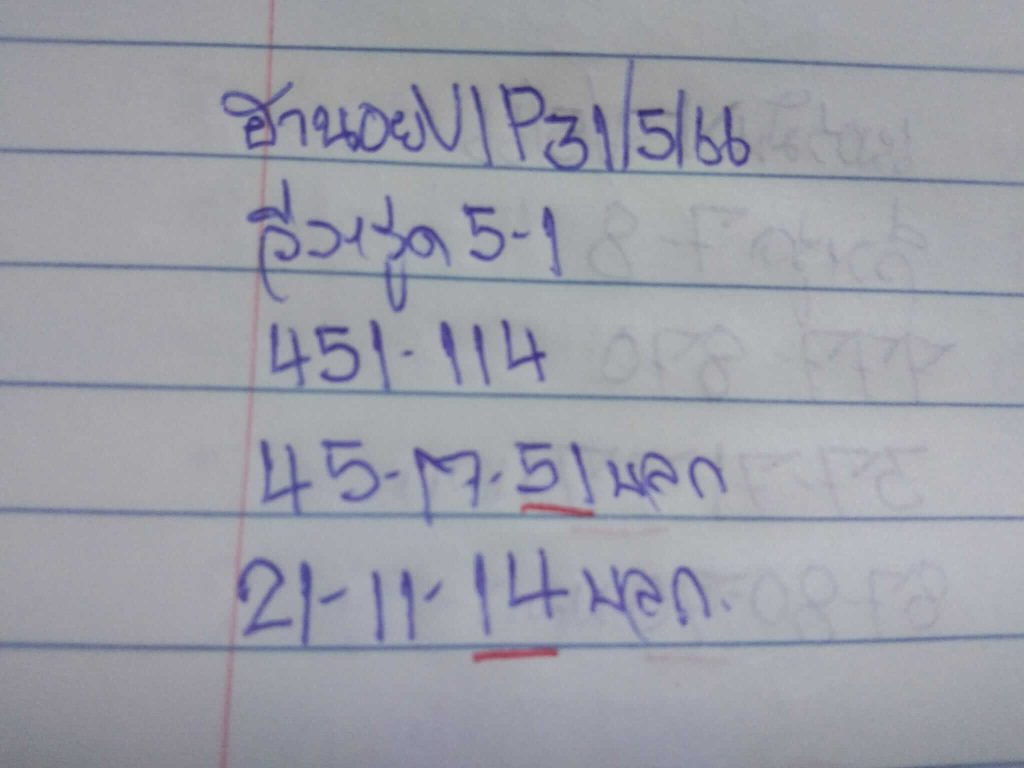 ฮานอยVIP31/5/66
วิ่งรูด 5-1
451-114
45-17-51บลก
21-11-14บลก.